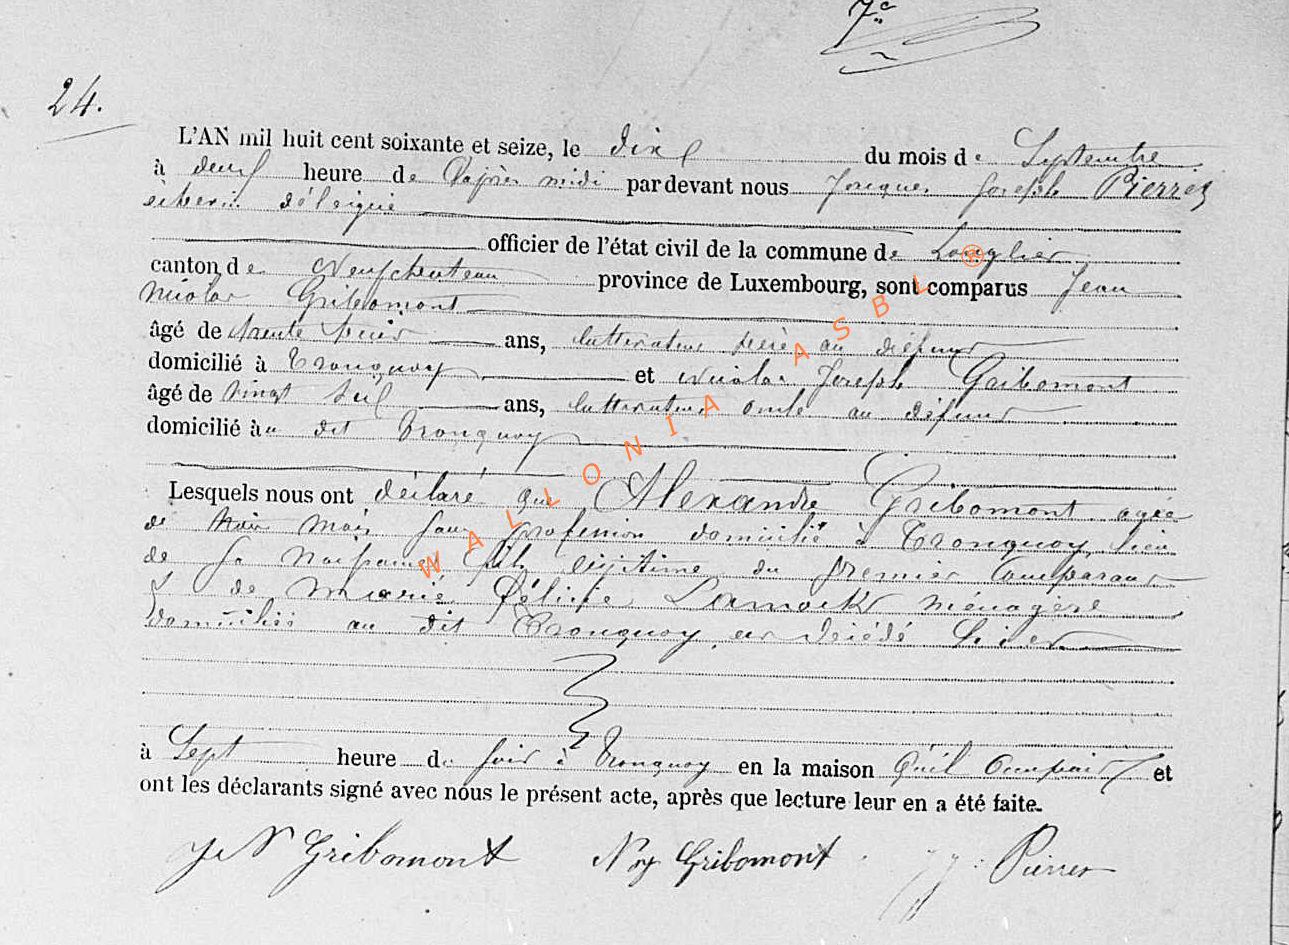 7e
24.
L'AN mil huit cent soixante et seize, le dix du mois de Septembre
à deux heure de l'après midi pardevant nous Jacques Joseph Pierret
échevin délégué
officier de l'état civil de la commune de Longlier
canton de Neufchateau province de Luxembourg, sont comparus Jean
Nicolas Gribomont
âgé de trente ans, cultivateur père au défunt
domicilié à Tronquoy et Nicolas Joseph Gribomont
âgé de vingt ans, cultivateur oncle au défunt
domicilié au dit Tronquoy
Lesquels nous ont déclaré que Alexandre Gribomont agée
de mois sans profession domicilié à Tronquoy, lieu
de sa naissance fils légitime du premier Comparant
& de Marie Félicie Lamock ménagère
domiciliés au dit Tronquoy, est décédé hier
à Sept heure du soir à Tronquoy en la maison qu'il occupait et
ont les déclarants signé avec nous le présent acte, après que lecture leur en a été faite.
J N Gribomont Gribomont J J Pierret
WALLONIA ASBL